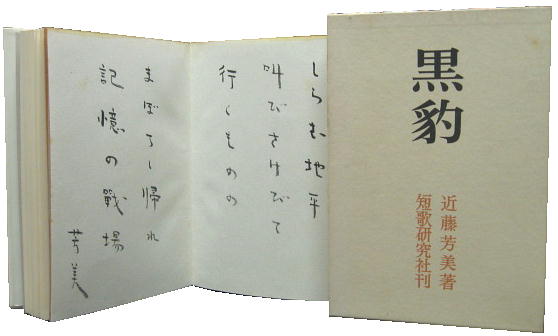 黒豹
近藤芳美著
短歌研究社刊
しらむ地平
叫びさけびて
行くものの
まぼろし帰れ
記憶の戰場
芳美